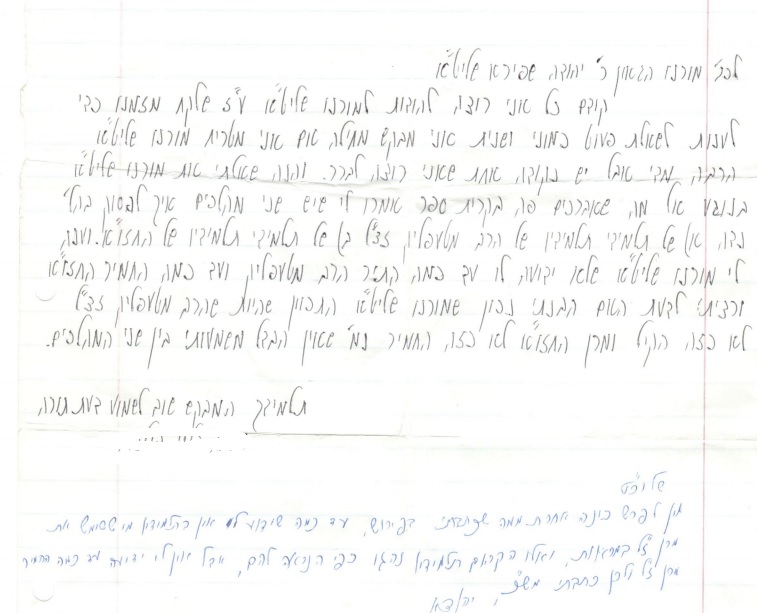 לכב' מורנו הגאון ר' יהודה שפירא שליט"א
קודם כל אני רוצה להודות למורנו שליט"א ע"ז שלקח מזמנו כדי
לענות לשאלת פעוט כמוני ושנית אני מבקש מחילה אם אני מטריח מורנו שליט"א
הרבה מדי אבל יש נקודה אחת שאני רוצה לברר. והנה שאלתי את מורנו שליט"א
בנוגע אל מה שאברכים פה בקרית ספר אמרו לי שיש שני מהלכים איך לפסוק בהל'
נדה א) של תלמידי תלמידיו של הרב מטעפליק זצ"ל ב) של תלמידי תלמידיו של החזו"א. וענה
לי מורנו שליט"א שלא ידועה לו עד כמה התיר הרב מטעפליק ועד כמה החמיר החזו"א
ורציתי לדעת האם הבנתי נכון שמורנו שליט"א התכוון שהיות שהרב מטעפליק זצ"ל
לא כזה הקיל ומרן החזו"א לא כזה החמיר נמ' שאין הבדל משמעותי בין שני המהלכים.
תלמידך המבקש שוב לשמוע דעת תורה
שלו' וכט
אין לפרש כונה אחרת ממה שכתבתי בפירוש, עד כמה שידוע לי אין תלמיד מי ששימש את
מרן ז"ל במראות, ואלו הקרואים תלמידיו נהגו כפי הנראה להם, אבל אין לי ידיעה עד כמה החמיר
מרן ז"ל ולכן כתבתי